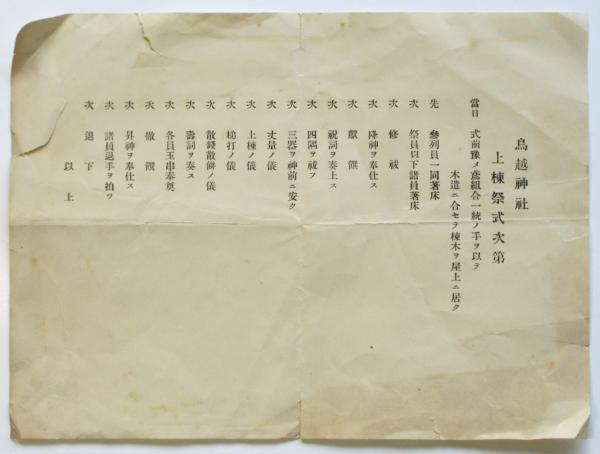 鳥越神社
上棟祭式次第
當日 式前豫メ鳶組合一統ノ手ヲ以テ
木遣ニ合セテ棟木ヲ屋上ニ居ク
先 參列員一同著床
次 祭員以下諸員著床
次 修祓
次 降神ヲ奉仕ス
次 獻饌
次 祝詞ヲ奏上ス
次 四隅ヲ祓フ
次 三器ヲ神前ニ安ク
次 丈量ノ儀
次 上棟ノ儀
次 槌打ノ儀
次 散錢散餅ノ儀
次 壽詞ヲ奏ス
次 各員玉串奉奠
次 撤饌
次 昇神ヲ奉仕ス
次 諸員退手ヲ拍ツ
次 退下
以上